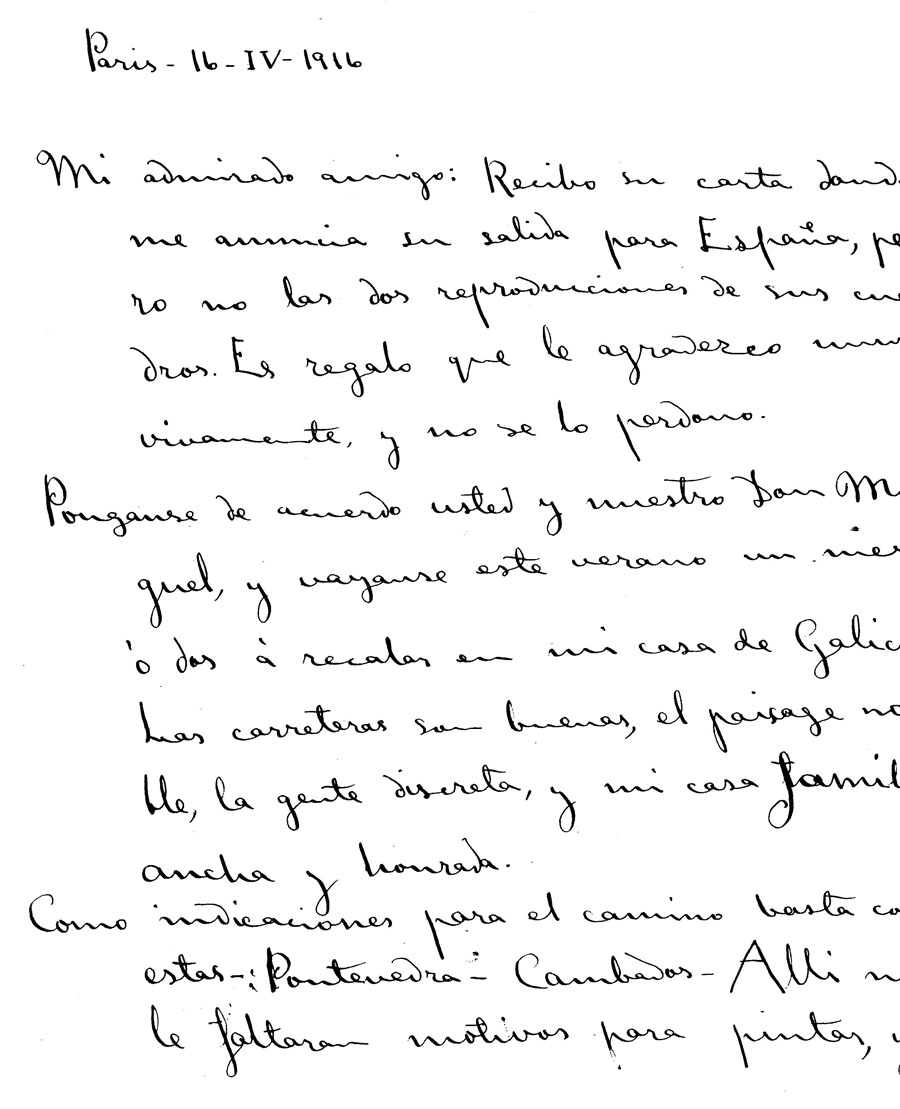 Paris - 16 - IV - 1916
Mi admirado amigo: Recibo su carta dand
me anuncia su salida para España, pe
ro no las dos reproduciones de sus cua
dros. Es regalo que le agradezco muy
vivamente, y no se lo perdono.
Ponganse de acuerdo usted y nuestro Don Mi
guel, y vayanse este verano un mes
ó dos á recalar en mi casa de Galic
Las carreteras son buenas, el paisage no
ble, la gente discreta, y mi casa famil
ancha y honrada.
Como indicaciones para el camino basta co
estas-: Pontevedra - Cambados - Alli n
le faltaran motivos para pintar,